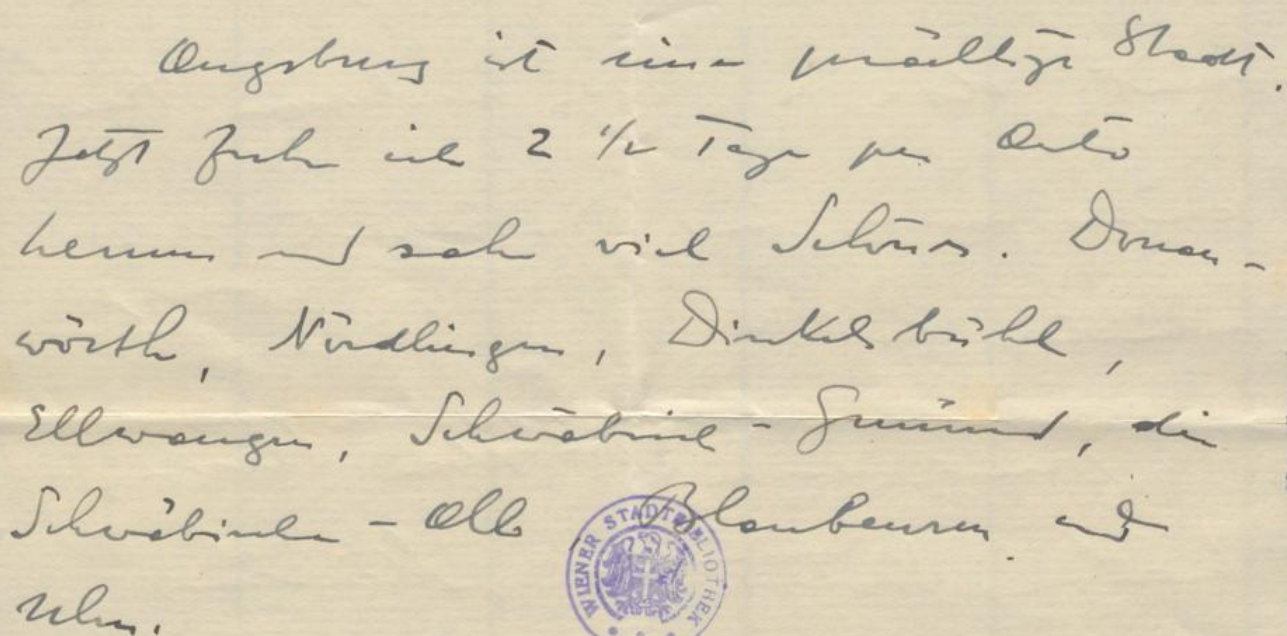 Augsburg ist eine prächtige Stadt.
Jetzt fuhr ich 2 1/2 Tage per Auto
herum und sah viel Schönes. Donau-
wörth, Nördlingen, Dinkelsbühl,
Ellwangen, Schwäbisch-Gmünd, die
Schwäbische-Alb Blaubeuren und
Ulm.
WIENER STADTBIBLIOTHEK